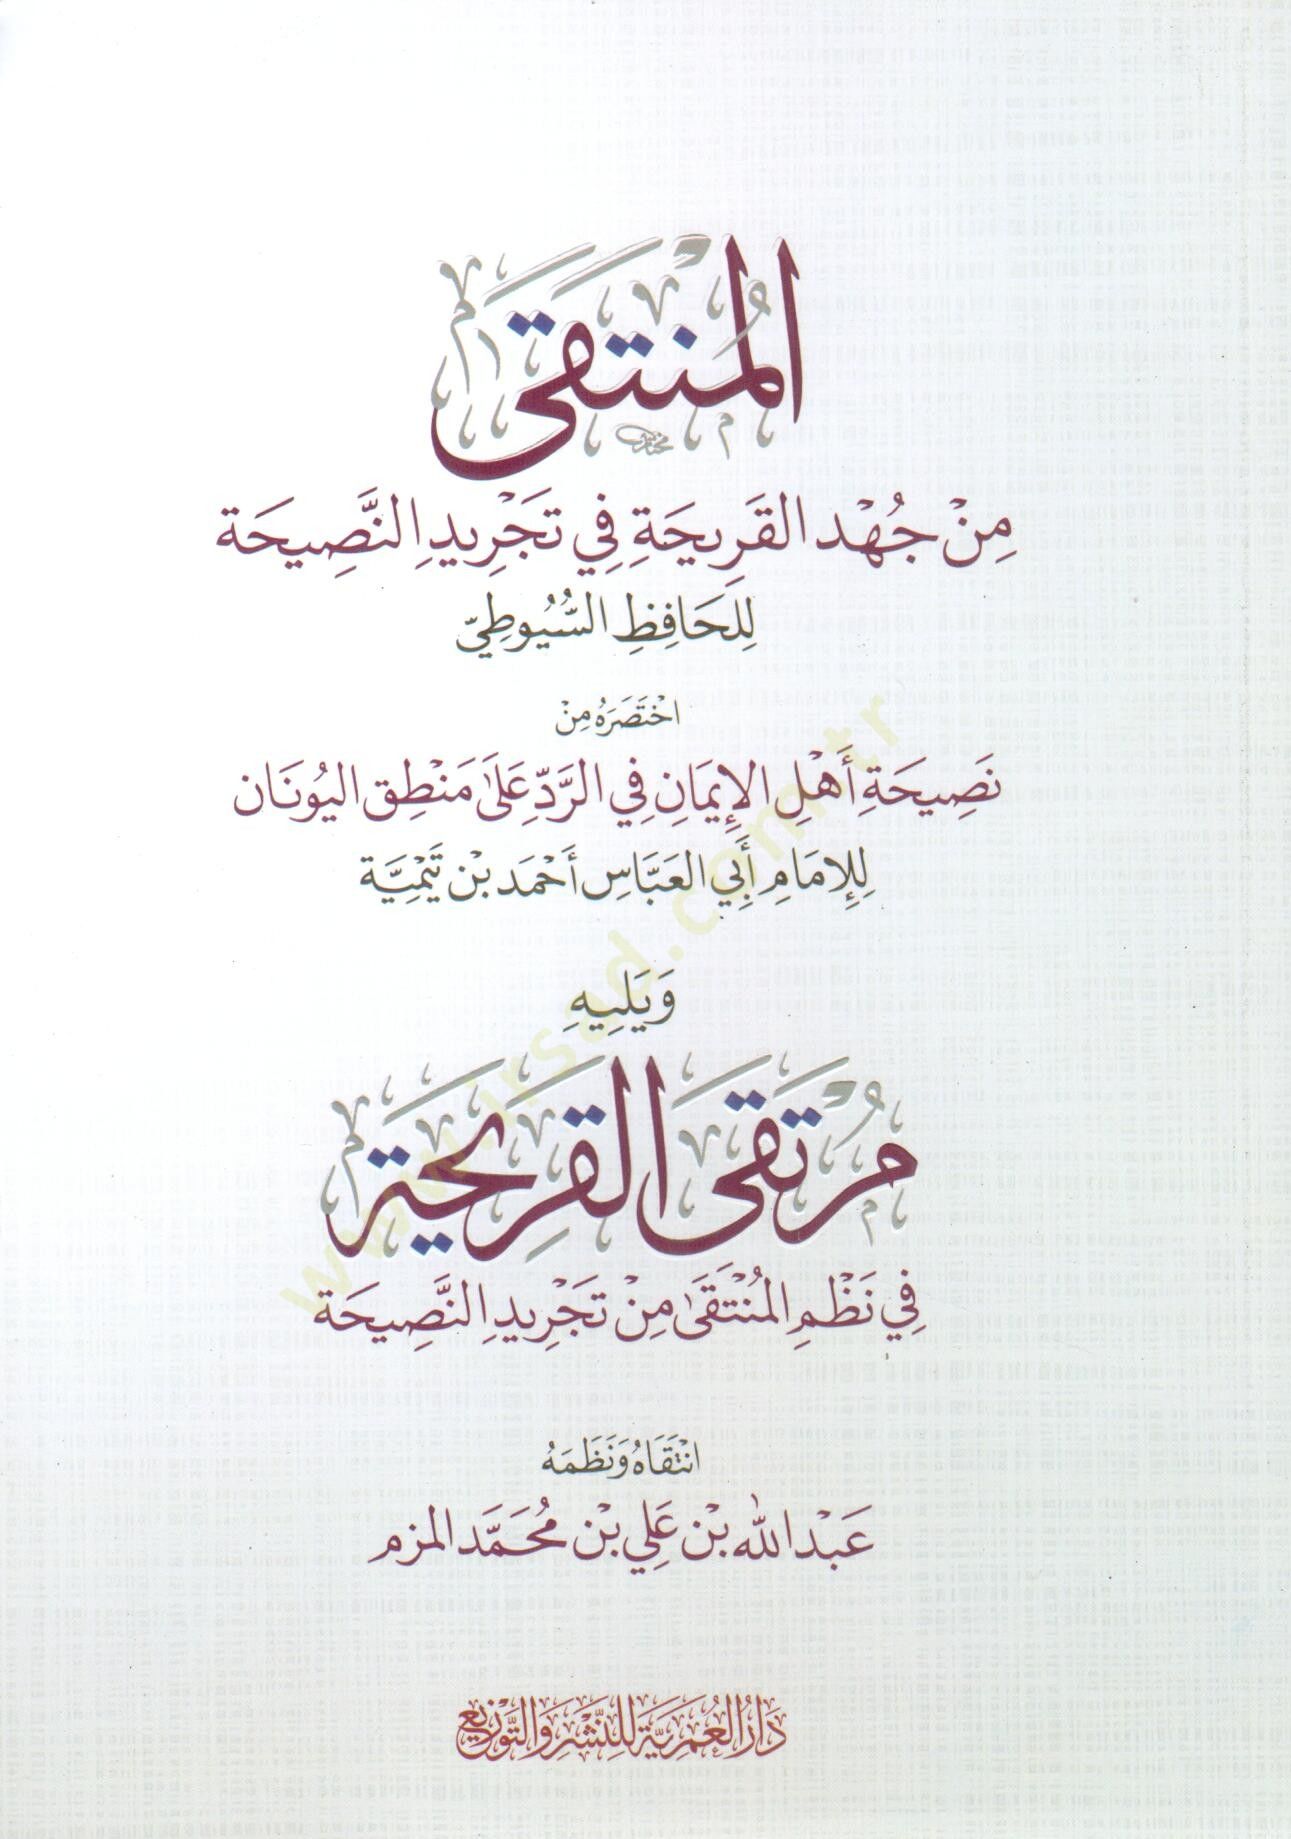 المُنْتَقَى
مِنْ جُهْدِ القَرِيحَةِ فِي تَجْرِيدِ النَّصِيحَة
لِلحَافِظِ السُّيُوطِيّ
اخْتَصَرَهُ مِنْ
نَصِيحَةِ أَهْلِ الإِيمَانِ فِي الرَّدِّ عَلَى مَنْطِقِ اليُونَان
لِلإِمَامِ أَبِي العَبَّاس أَحْمَد بْن تَيْمِيَّة
وَيَلِيهِ
مُرْتَقَى القَرِيحَةِ
فِي نَظْمِ المُنْتَقَى مِنْ تَجْرِيدِ النَّصِيحَة
انْتَقَاهُ وَنَظَمَهُ
عَبْد اللّٰه بْن عَلِي بْن مُحَمَّد المزم
دَارُ العُمَرِيَّة لِلنَّشْرِ وَالتَّوْزِيعِ
www.irsad.com.tr